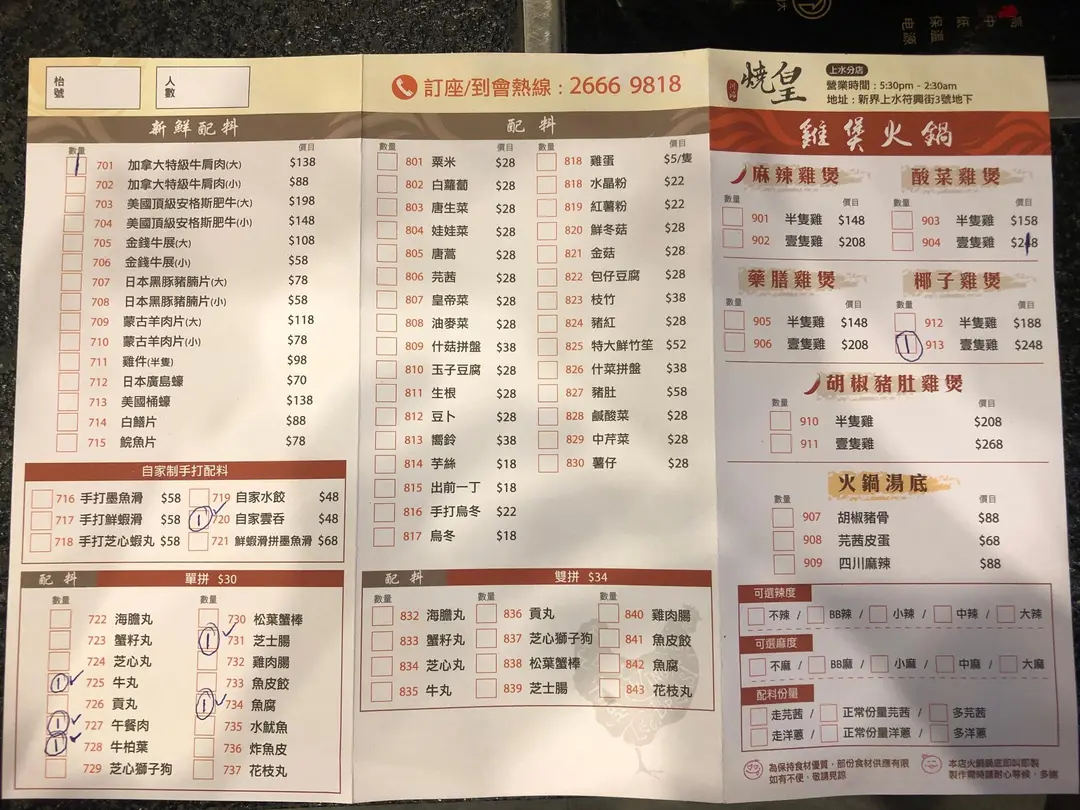 枱號
人數
新鮮配料
數量
價目
1 701 加拿大特級牛肩肉(大) $138
702 加拿大特級牛肩肉(小) $88
703 美國頂級安格斯肥牛(大) $198
704 美國頂級安格斯肥牛(小) $148
705 金錢牛展(大) $108
706 金錢牛展(小) $58
707 日本黑豚豬腩片(大) $78
708 日本黑豚豬腩片(小) $58
709 蒙古羊肉片(大) $118
710 蒙古羊肉片(小) $78
711 雞件(半隻) $98
712 日本廣島蠔 $70
713 美國桶蠔 $138
714 白鱔片 $88
715 鯇魚片 $78
自家制手打配料
716 手打墨魚滑 $58
719 自家水餃 $48
717 手打鮮蝦滑 $58
1 720 自家雲吞 $48
718 手打芝心蝦丸 $58
721 鮮蝦滑拼墨魚滑 $68
配料
單拼 $30
數量
數量
722 海膽丸
723 蟹籽丸
724 芝心丸
1 725 牛丸
726 貢丸
1 727 午餐肉
1 728 牛柏葉
729 芝心獅子狗
730 松葉蟹棒
1 731 芝士腸
732 雞肉腸
733 魚皮餃
1 734 魚腐
735 水魷魚
736 炸魚皮
737 花枝丸
訂座/到會熱線 : 2666 9818
配料
數量
價目
801 粟米 $28
802 白蘿蔔 $28
803 唐生菜 $28
804 娃娃菜 $28
805 唐蒿 $28
806 芫茜 $28
807 皇帝菜 $28
808 油麥菜 $28
809 什菇拼盤 $38
810 玉子豆腐 $28
811 生根 $28
812 豆卜 $28
813 嚮鈴 $38
814 芋絲 $18
815 出前一丁 $18
816 手打烏冬 $22
817 烏冬 $18
數量
價目
818 雞蛋 $5/隻
818 水晶粉 $22
819 紅薯粉 $22
820 鮮冬菇 $28
821 金菇 $28
822 包仔豆腐 $28
823 枝竹 $38
824 豬紅 $28
825 特大鮮竹笙 $52
826 什菜拼盤 $38
827 豬肚 $58
828 鹹酸菜 $28
829 中芹菜 $28
830 薯仔 $28
配料
雙拼 $34
數量
數量
數量
832 海膽丸
833 蟹籽丸
834 芝心丸
835 牛丸
836 貢丸
837 芝心獅子狗
838 松葉蟹棒
839 芝士腸
840 雞肉腸
841 魚皮餃
842 魚腐
843 花枝丸
燒皇
上水分店
營業時間 : 5:30pm - 2:30am
地址 : 新界上水符興街3號地下
雞煲火鍋
麻辣雞煲
數量
價目
901 半隻雞 $148
902 壹隻雞 $208
酸菜雞煲
數量
價目
903 半隻雞 $158
904 壹隻雞 $248
藥膳雞煲
數量
價目
905 半隻雞 $148
906 壹隻雞 $208
椰子雞煲
數量
價目
912 半隻雞 $188
1 913 壹隻雞 $248
胡椒豬肚雞煲
數量
價目
910 半隻雞 $208
911 壹隻雞 $268
火鍋湯底
數量
價目
907 胡椒豬骨 $88
908 芫茜皮蛋 $68
909 四川麻辣 $88
可選辣度
不辣 / BB辣 / 小辣 / 中辣 / 大辣
可選麻度
不麻 / BB麻 / 小麻 / 中麻 / 大麻
配料份量
走芫茜 / 正常份量芫茜 / 多芫茜
走洋蔥 / 正常份量洋蔥 / 多洋蔥
為保持食材優質，部份食材供應有限
如有不便，敬請見諒
本店火鍋鍋底即叫即製
製作需時請耐心等候，多謝